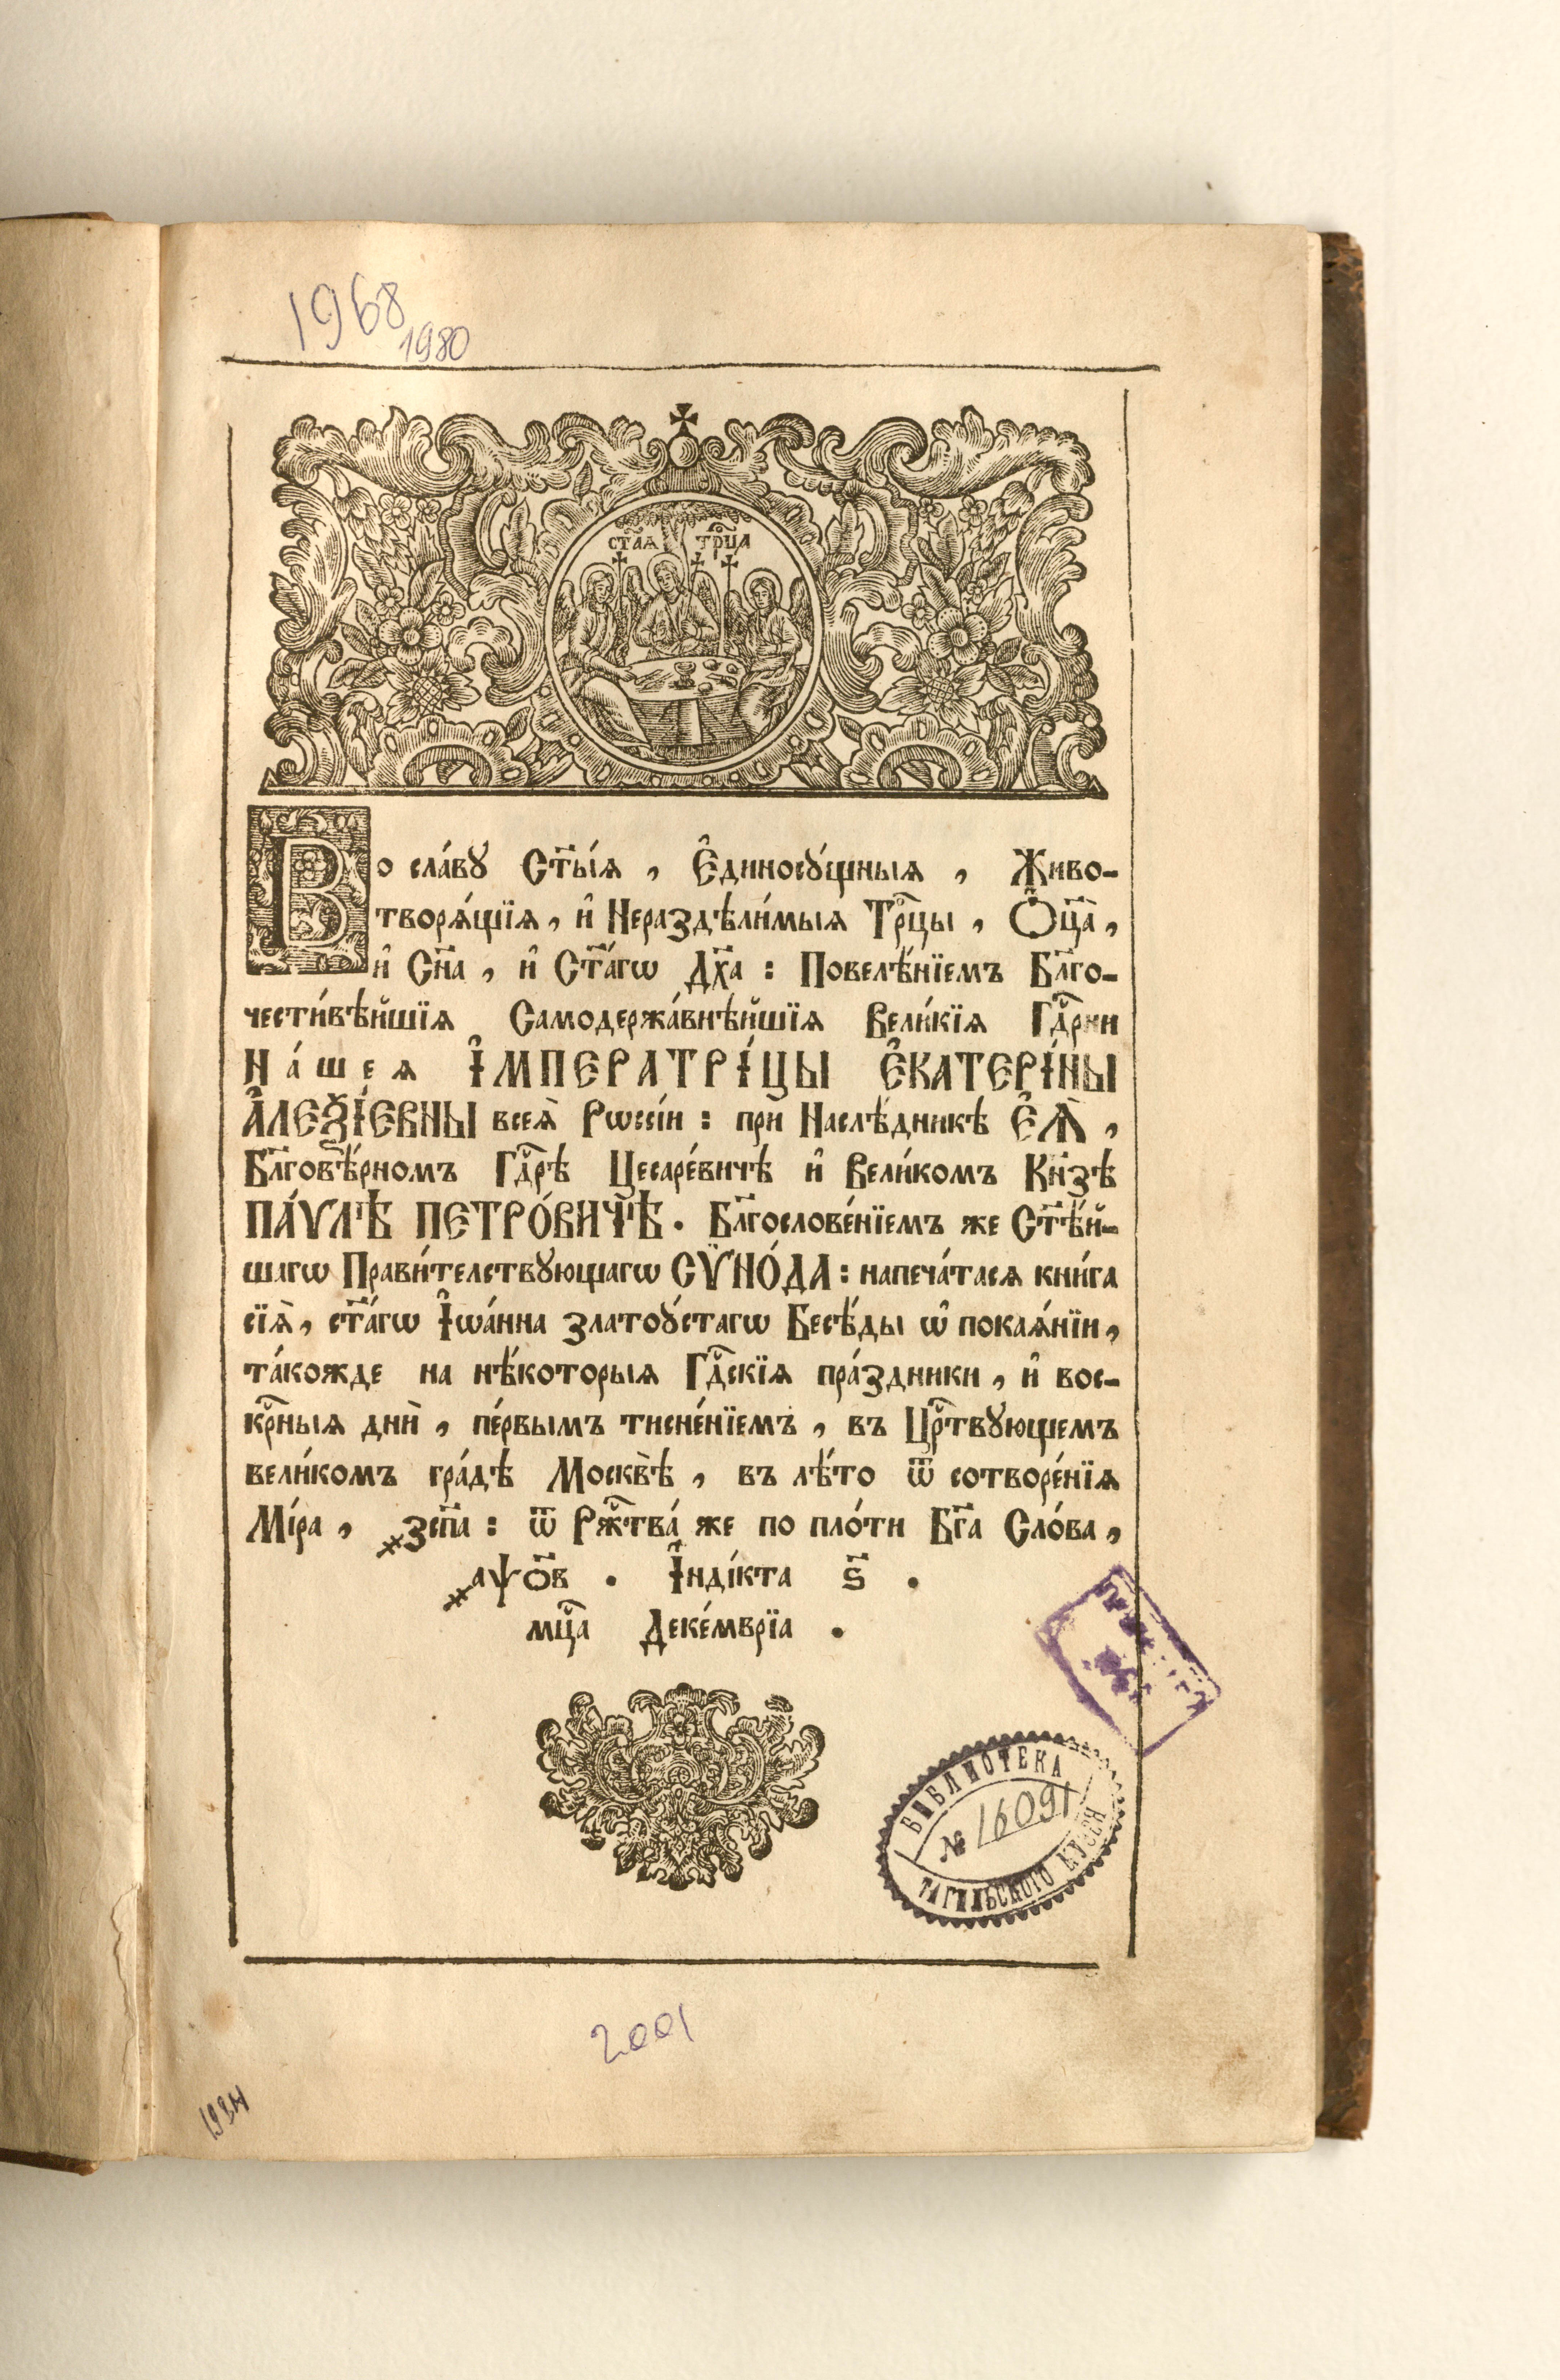 1968
1980
ст҃ая трⷪ҇ца
Во сла́вꙋ Ст҃ы́ѧ, Є҆диносꙋ́щныѧ, Живо-
творѧ́щїѧ, и҆ Нераздѣли́мыѧ Трⷪ҇цы, Ѻ҆ц҃а̀,
и҆ Сн҃а, и҆ Ст҃а́гѡ Дх҃а: Повелѣ́нїемъ Бл҃го-
чести́вѣйшїѧ Самодержа́внѣйшїѧ Вели́кїѧ Гдⷭ҇рни
На́шеѧ І҆МПЕРАТРІ́ЦЫ Є҆КАТЕРІ́НЫ
А҆ЛЕѮІ́ЕВНЫ всеѧ̀ Рѡссі́и: прѝ Наслѣ́дникѣ Є҆Ѧ̀,
Бл҃говѣ́рномъ Гдⷭ҇рѣ Цесаре́вичѣ и҆ Вели́комъ Кн҃зѣ
ПА́ѴЛѢ ПЕТРО́ВИЧѢ. Бл҃гослове́нїемъ же Ст҃ѣ́й-
шагѡ Прави́телствꙋющагѡ СѴНО́ДА: напеча́тасѧ кни́га
сїѧ̀, ст҃а́гѡ І҆ѡа́нна златоꙋ́стагѡ Бесѣ́ды ѡ҆ покаѧ́нїи,
та́кожде на нѣ́которыѧ Гдⷭ҇скїѧ пра́здники, и҆ вос-
крⷭ҇ныѧ дни̑, пе́рвымъ тисне́нїемъ, въ Црⷭ҇твꙋющемъ
вели́комъ гра́дѣ Москвѣ̀, въ лѣ́то ѿ сотворе́нїѧ
Мі́ра, ҂зсп҃а: ѿ Ржⷭ҇тва́ же по пло́ти Бг҃а Сло́ва,
҂аѱо҃в. І҆нді́кта ѕ҃.
мцⷭ҇а Деке́мврїа.
БИБЛИОТЕКА
№ 16091
ТАГИЛЬСКОГО МУЗЕЯ
2001